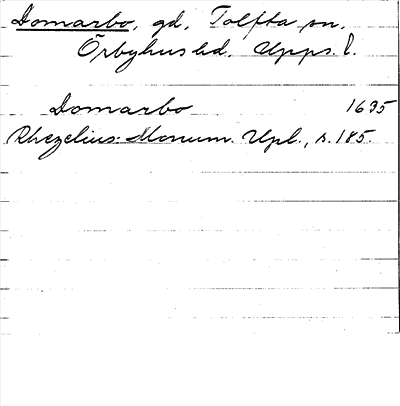 Domarbo, gd, Tolfta sn,
Örbyhus hd, Upps. l.
Domarbo 1635
Rhezelius: Monum. Upl., s. 185.